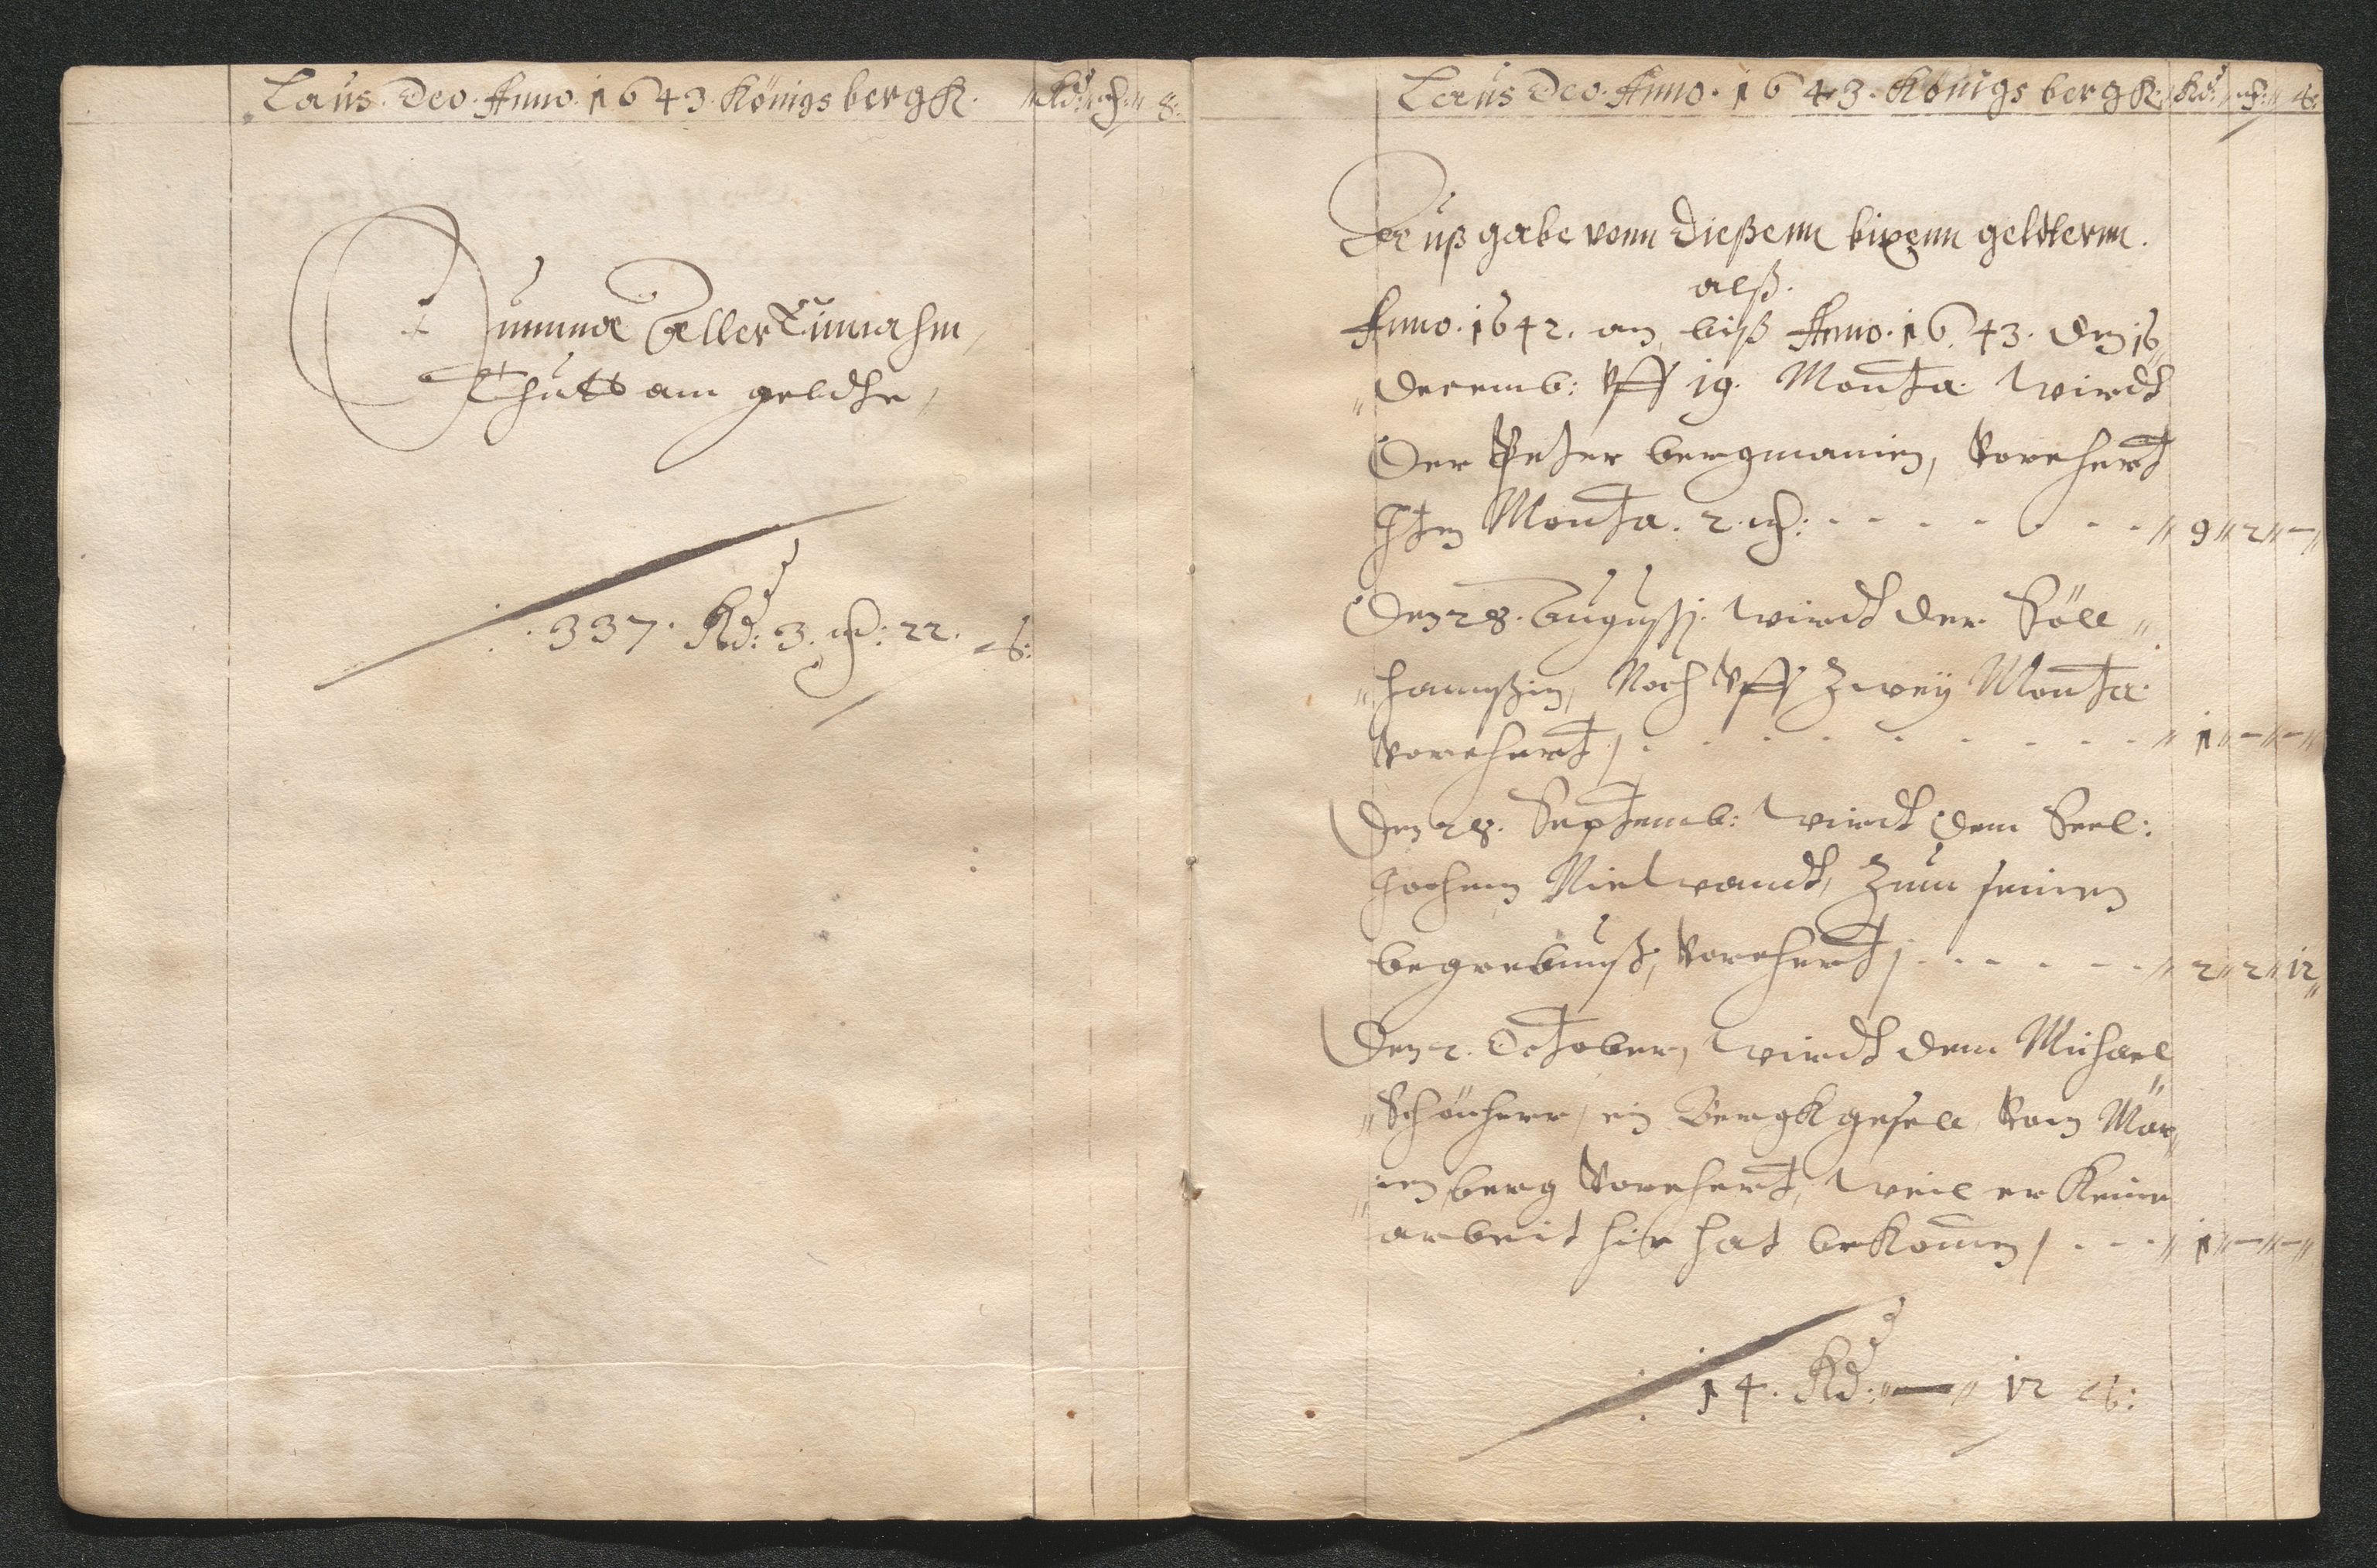 Laus Deo Anno 1643 Königsbergk. Rd: mk: ß:
Summa Aller Einnahm,
Thutt am geldte,
337. Rd: 3. mk: 22. ß:
Laus Deo. Anno. 1643. Königsbergk. Rd: mk: ß:
Außgabe vonn dießenn bixenn geldternn.
alß.
Anno. 1642. an, biß Anno. 1643. den 16
decemb: Vff 19. Monta wirdt
der Peter bergmanin, Vorehert
Iten Monta. 2. mk: - - - - - - - 9 2 -
Den 28. Augusti. wirdt der Söll
hanußin, Noch Vff Zweÿ Monta
Vorehert, - - - - - - - - - 1 - -
Den 28. Septemb: wirdt dem Seel:
Jochem Nielwandt, Zum seinen
begrebnuß, Vorehert, - - - - - - 2 2 12
Den 2. October, wirdt dem Michael
Schönherr, ein Bergkgesell, Von Mar,,
ien berg Vorehert, weil er Keine
arbeit hir hat bekomen, - - - 1 - -
14. Rd: — 12 ß: